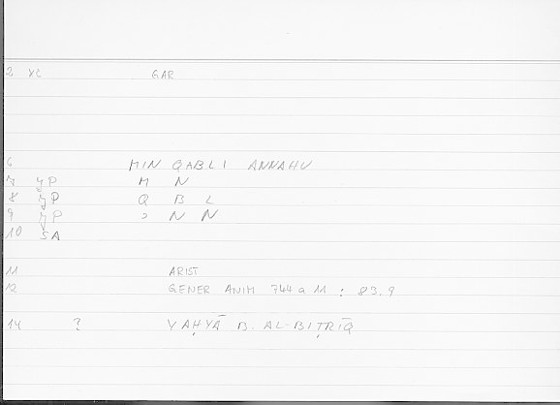 2 GAR
6 MIN QABLI ANNAHU
7 M N
8 Q B L
9 ʾ N N
10
11 ARIST
12 GENER ANIM 744 a 11 : 83.9
14 ? YAḤYĀ B. AL-BIṬRĪQ